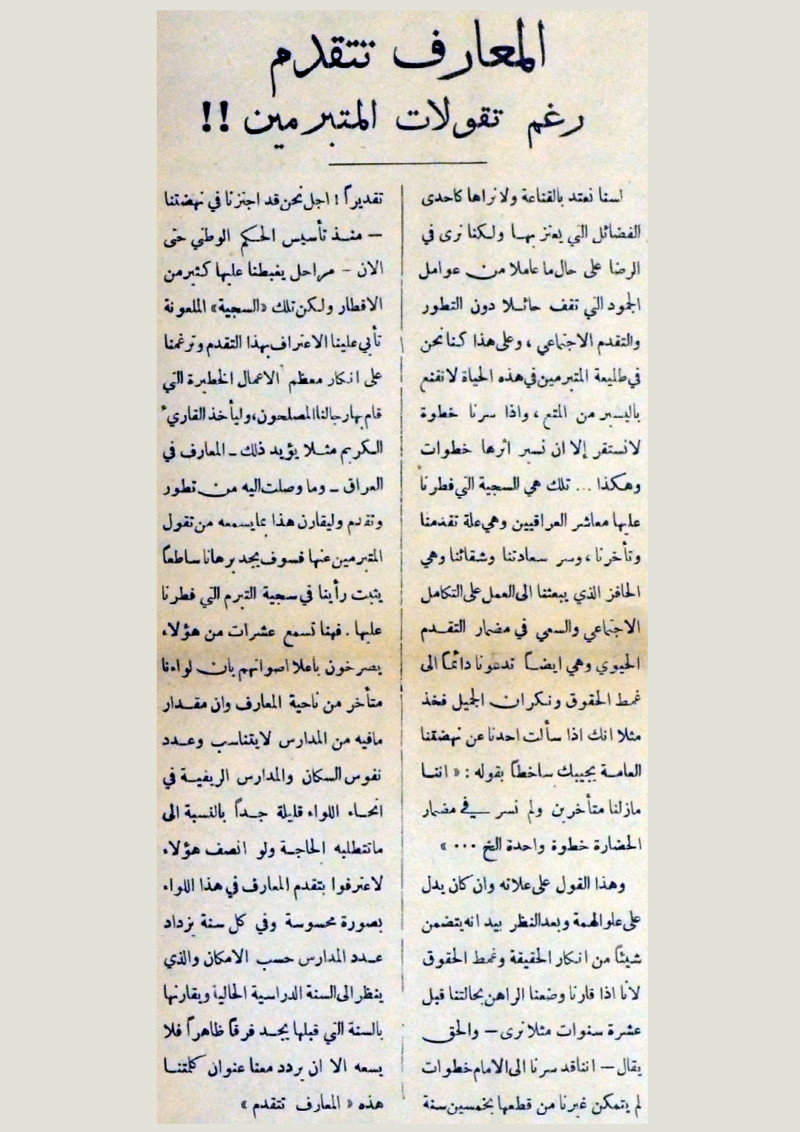 المعارف تتقدم
رغم تقولات المتبرمين !!
لسنا نعتد بالقناعة ولا نراها كاحدى
الفضائل التي يعتز بها ولكنا نرى في
الرضا على حال ما عاملا من عوامل
الجمود التي تقف حائلا دون التطور
والتقدم الاجتماعي ، وعلى هذا كنا نحن
في طليعة المتبرمين في هذه الحياة لا نقنع
باليسير من المتع ، واذا سرنا خطوة
لا نستقر إلا ان نسير اثرها خطوات
وهكذا ... تلك هي السجية التي فطرنا
عليها معاشر العراقيين وهي علة تقدمنا
وتأخرنا ، وسر سعادتنا وشقائنا وهي
الحافز الذي يبعثنا الى العمل على التكامل
الاجتماعي والسعي في مضمار التقدم
الحيوي وهي ايضاً تدعونا دائماً الى
غمط الحقوق ونكران الجميل فخذ
مثلا انك اذا سألت احدنا عن نهضتنا
العامة يجيبك ساخطاً بقوله : « اننا
مازلنا متأخرين ولم نسر في مضمار
الحضارة خطوة واحدة الخ ... »
وهذا القول على علاته وان كان يدل
على علو الهمة وبعد النظر بيد انه يتضمن
شيئاً من انكار الحقيقة وغمط الحقوق
لانا اذا قارنا وضعنا الراهن بحالتنا قبل
عشرة سنوات مثلا نرى — والحق
يقال — اننا قد سرنا الى الامام خطوات
لم يتمكن غيرنا من قطعها بخمسين سنة
تقديراً ! اجل نحن قد اجتزنا في نهضتنا
— منذ تأسيس الحكم الوطني حتى
الان - مراحل يغبطنا عليها كثير من
الاقطار ولكن تلك «السجية» الملعونة
تأبى علينا الاعتراف بهذا التقدم وترغمنا
على انكار معظم الاعمال الخطيرة التي
قام بها رجالنا المصلحون ، وليأخذ القارئ
الكريم مثلا يؤيد ذلك - المعارف في
العراق - وما وصلت اليه من تطور
وتقدم وليقارن هذا بما يسمعه من تقول
المتبرمين عنها فسوف يجد برهانا ساطعاً
يثبت رأينا في سجية التبرم التي فطرنا
عليها . فهنا تسمع عشرات من هؤلاء
يصرخون باعلا اصواتهم بان لواءنا
متأخر من ناحية المعارف وان مقدار
مافيه من المدارس لا يتناسب وعدد
نفوس السكان والمدارس الريفية في
انحاء اللواء قليلة جداً بالنسبة الى
ماتتطلبه الحاجة ولو انصف هؤلاء
لاعترفوا بتقدم المعارف في هذا اللواء
بصورة محسوسة وفي كل سنة يزداد
عدد المدارس حسب الامكان والذي
ينظر الى السنة الدراسية الحالية ويقارنها
بالسنة التي قبلها يجد فرقاً ظاهراً فلا
يسعه الا ان يردد معنا عنوان كلمتنا
هذه « المعارف تتقدم »